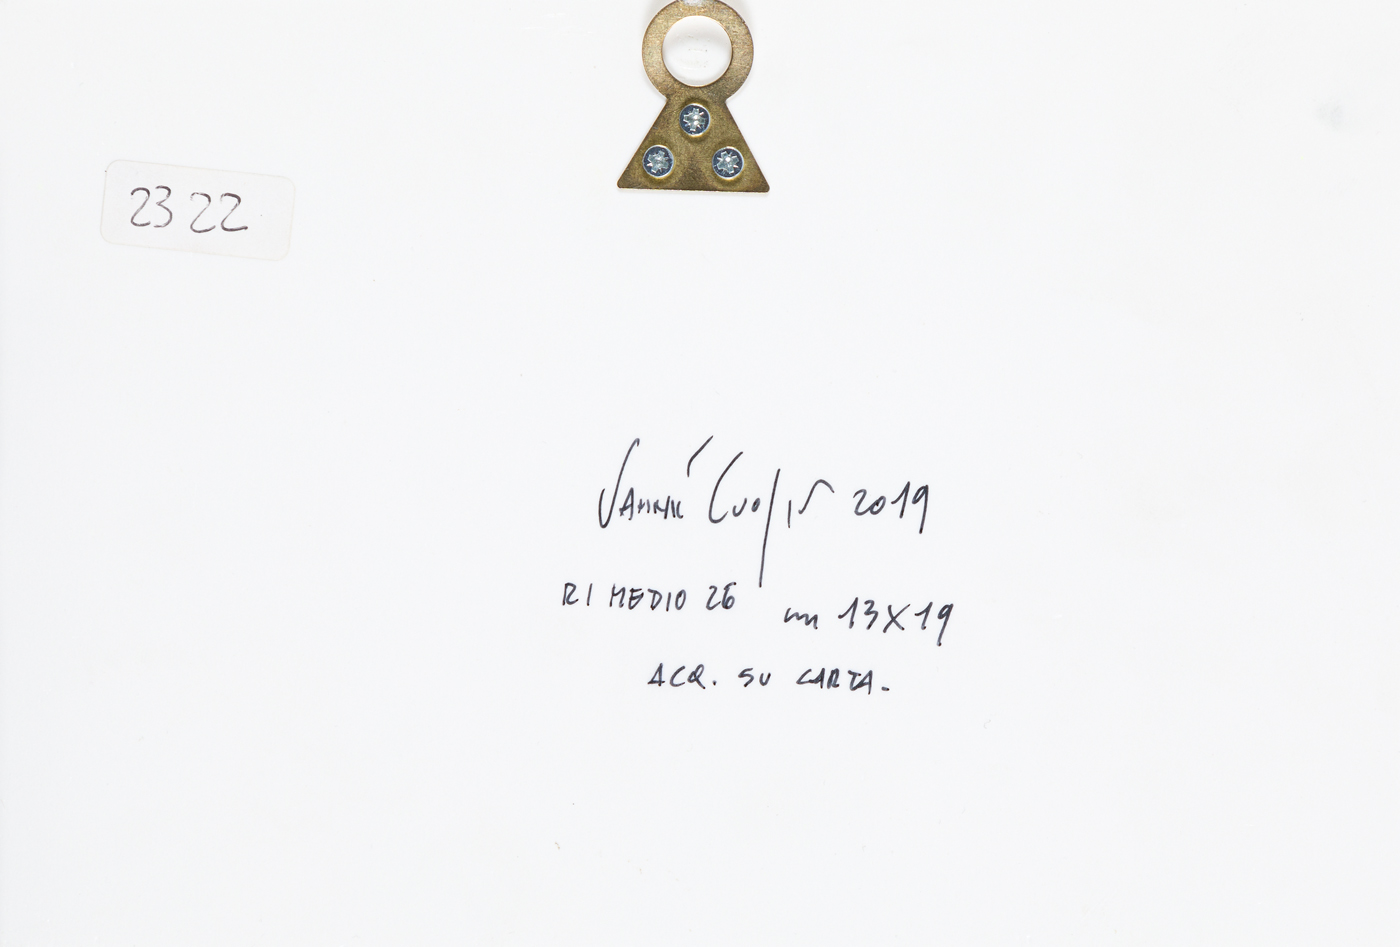 2322
Vanni Cuoghi 2019
RIMEDIO 26
cm 13X19
ACQ. SU CARTA.